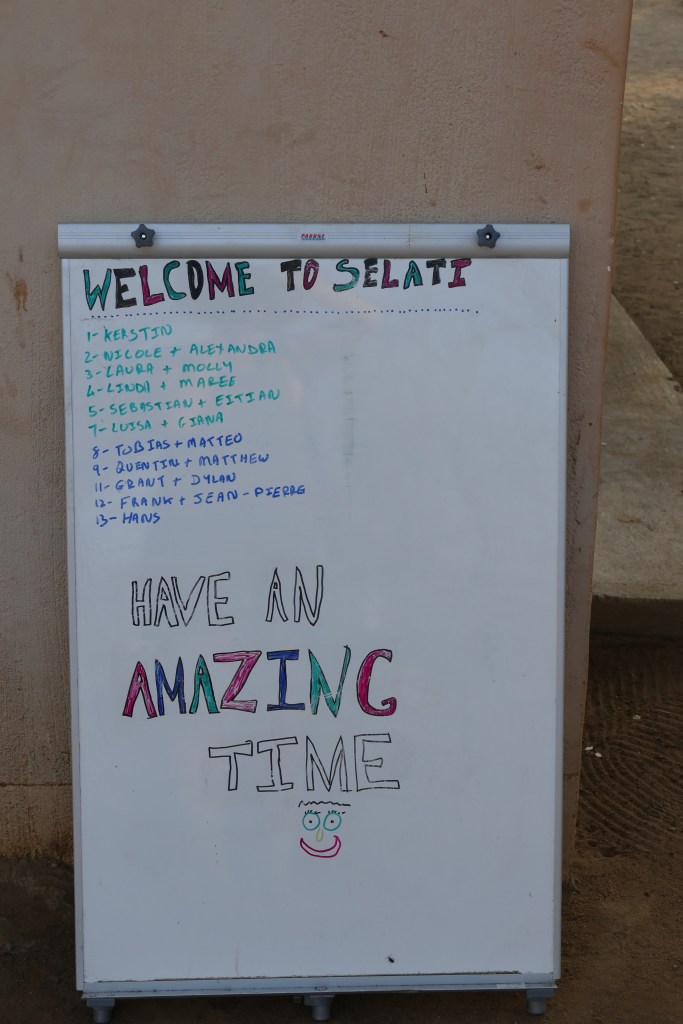 WELCOME TO SELATI
1- KERSTIN
2- NICOLE + ALEXANDRA
3- LAURA + MOLLY
4- LINDA + MAREE
5- SEBASTIAN + EITIAN
7- LUISA + GIANA
8- TOBIAS + MATTEO
9- QUENTIN + MATTHEW
11- GRANT + DYLAN
12- FRANK + JEAN-PIERRE
13- HANS
HAVE AN
AMAZING
TIME